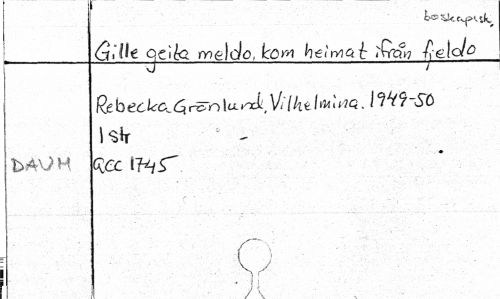 boskapslock
Gille geita meldo, kom heimat ifrån fjeldo
Rebecka Grönlund, Vilhelmina. 1949-50
1 str
DAUM acc 1745